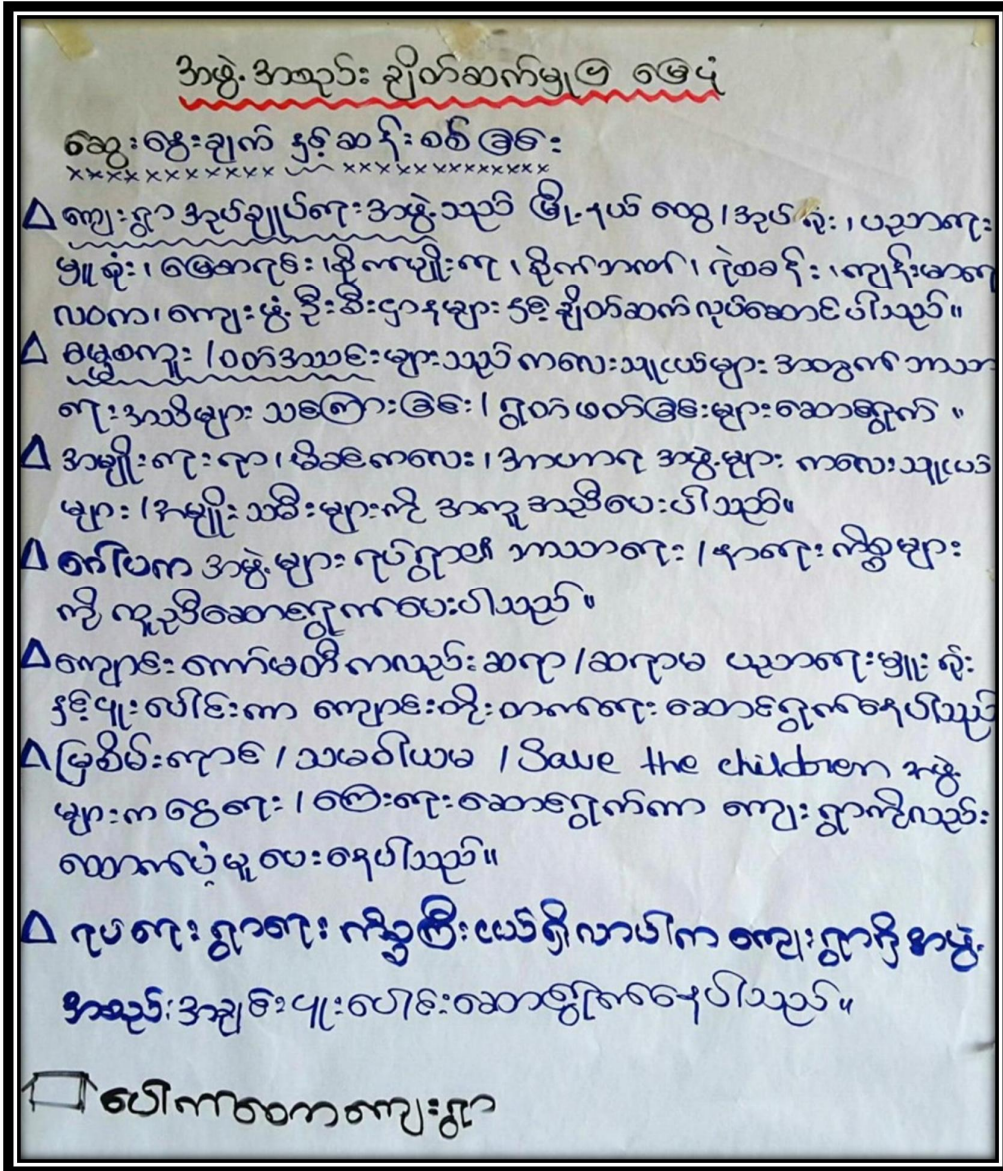 အဖွဲ့အစည်း ချိတ်ဆက်မှုပြ မြေပုံ
ဆွေးနွေးချက် နှင့် ဆန်းစစ်ခြင်း
xxxxxxxxxxxx xxxxxxxxxxxx
△ ကျေးရွာအုပ်ချုပ်ရေးအဖွဲ့သည် မြို့နယ် ထွေ/အုပ်ရုံး၊ ပညာရေး
မှူးရုံး၊ မြေစာရင်း၊ စိုက်ပျိုးရေး၊ စိုက်ဘဏ်၊ ရဲစခန်း၊ ကျန်းမာရေး
လဝက၊ ကျေးဖွံ့ဦးစီးဌာနများ နှင့် ချိတ်ဆက် လုပ်ဆောင်ပါသည်။
△ ဓမ္မစကူး / ဝတ်အသင်းများသည် ကလေးသူငယ်များ အတွက် ဘာသာ
ရေးအသိများ သင်ကြားခြင်း / ရွတ်ဖတ်ခြင်းများဆောင်ရွက် ။
△ အမျိုးသားရေးရာ၊ မိခင်ကလေး၊ အာဟာရ အဖွဲ့များ ကလေးသူငယ်
များ / အမျိုးသမီးများကို အကူအညီပေးပါသည်။
△ ဂေါပက အဖွဲ့များ ရပ်ရွာ၏ ဘာသာရေး / နာရေးကိစ္စများ
ကို ကူညီဆောင်ရွက်ပေးပါသည်။
△ ကျောင်းကော်မတီကလည်း ဆရာ/ဆရာမ ပညာရေးမှူးရုံး
နှင့်ပူးပေါင်းကာ ကျောင်းတိုးတက်ရေး ဆောင်ရွက်နေပါသည်
△ မြစိမ်းရောင် / သမဝါယမ / Save the children အဖွဲ့
များက ငွေရေး / ကြေးရေးဆောင်ရွက်ကာ ကျေးရွာကိုလည်း
ထောက်ပံ့မှု ပေးနေပါသည်။
△ ရပ်ရေးရွာရေး ကိစ္စကြီးငယ်ရှိလာပါက ကျေးရွာရှိ အဖွဲ့
အစည်းအချင်းပူးပေါင်းဆောင်ရွက်နေပါသည်။
ကျေးရွာ